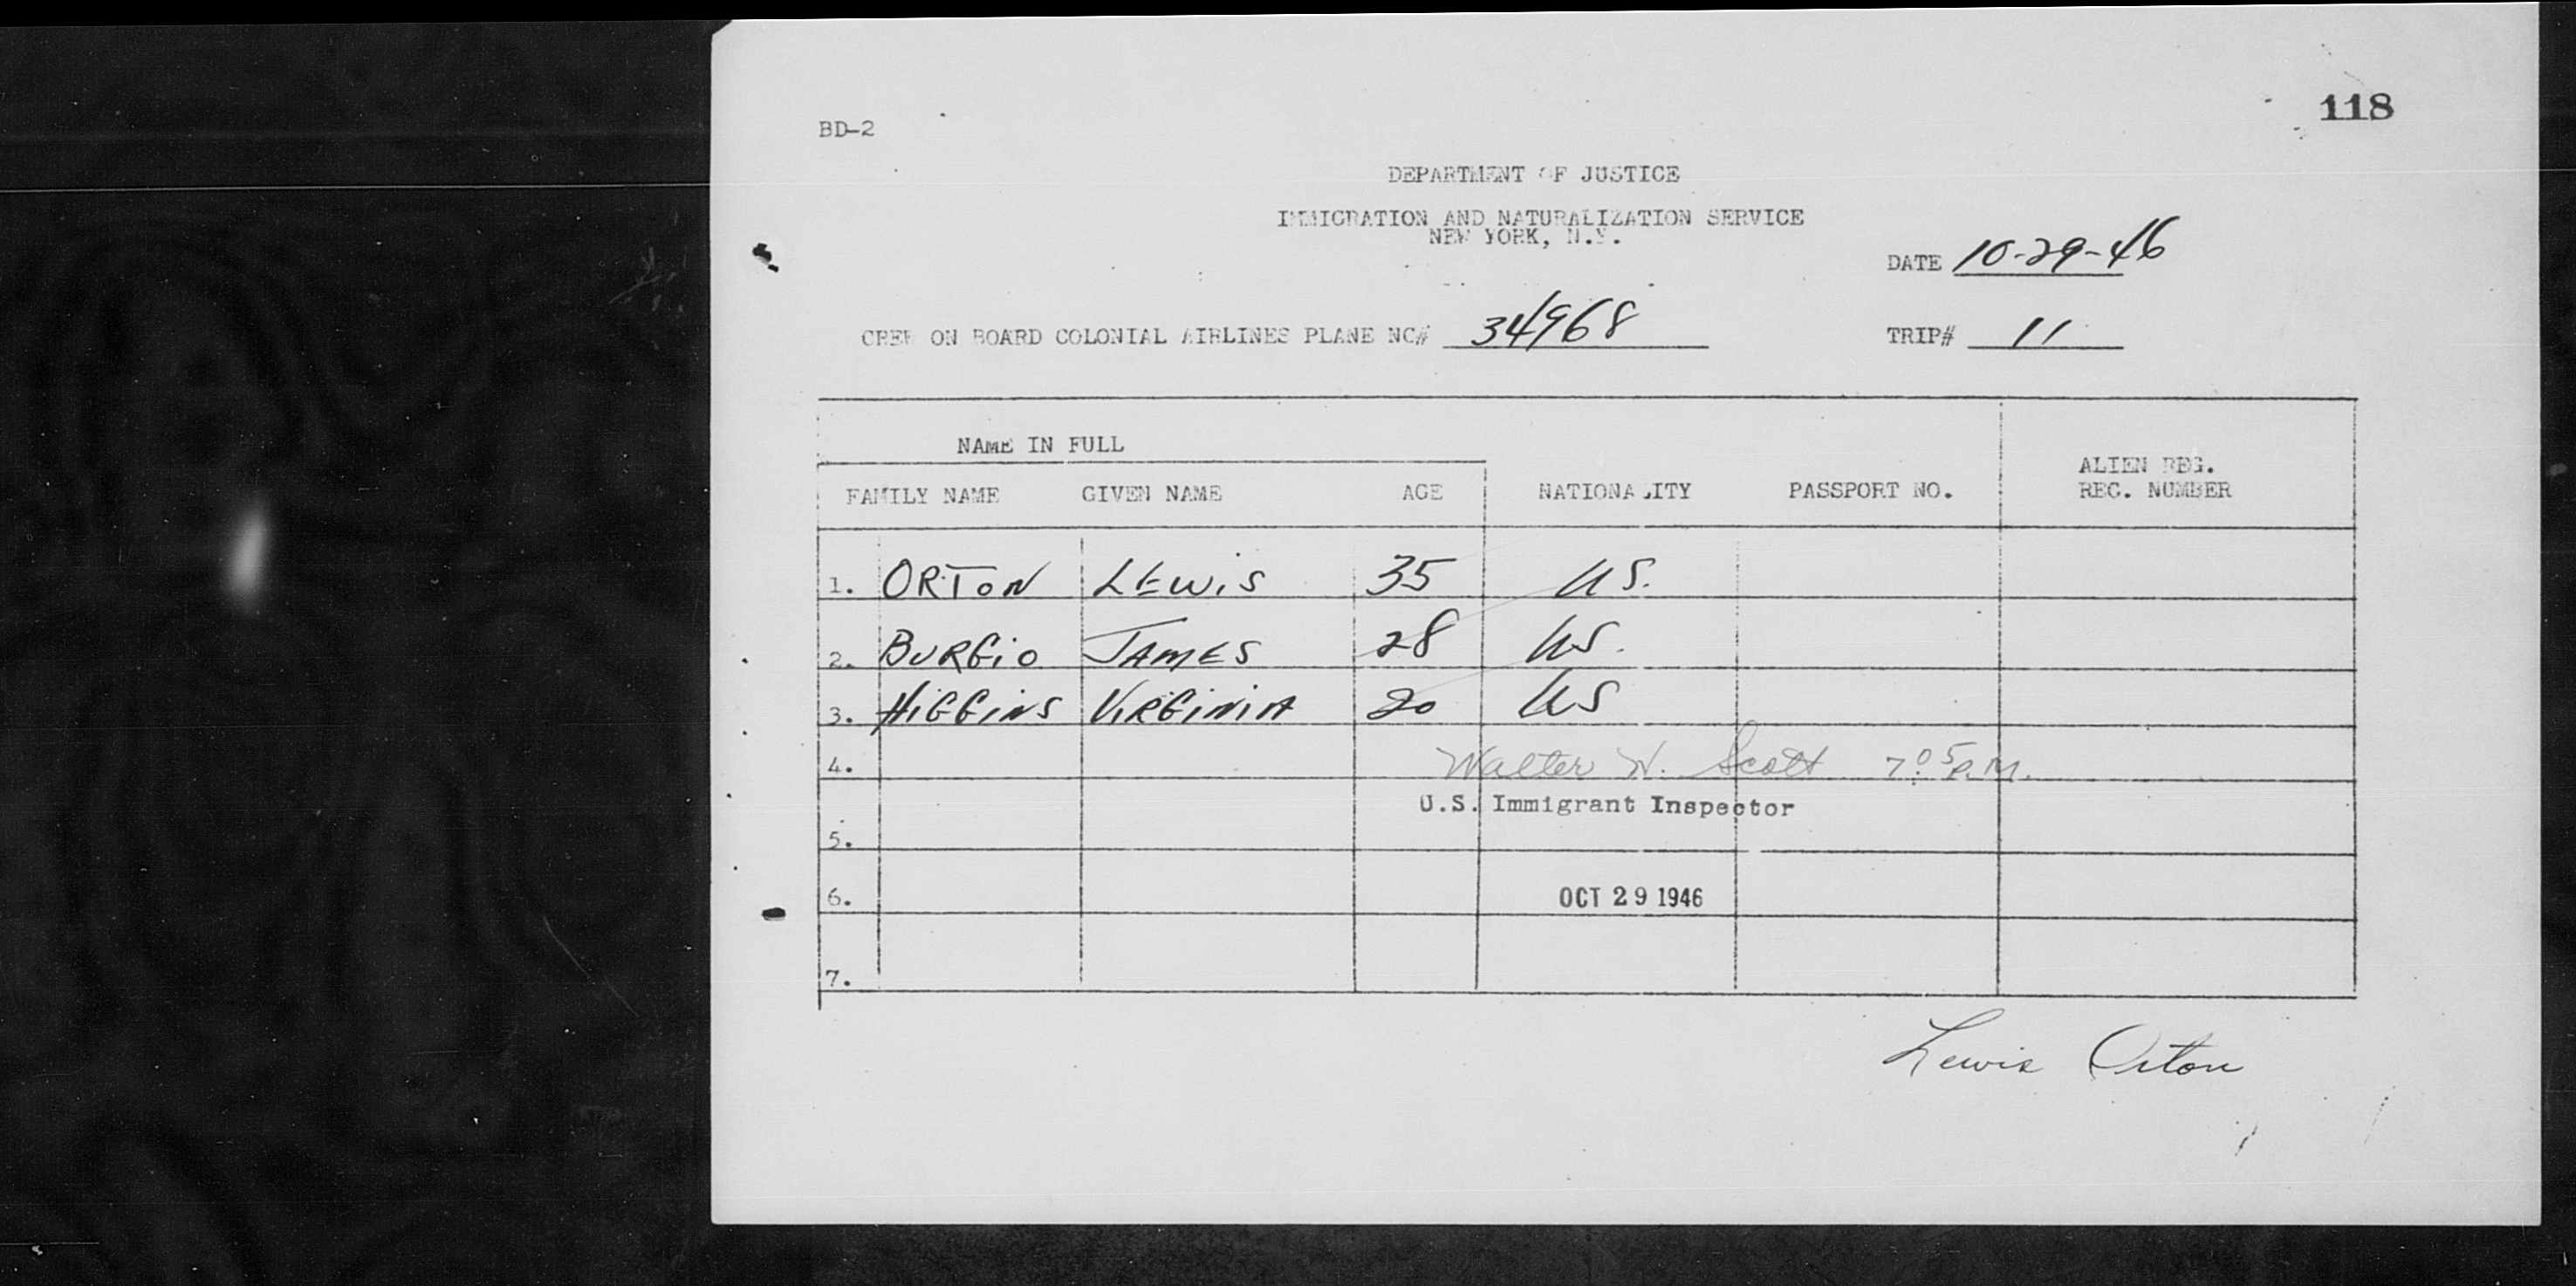 118
BD-2
DEPARTMENT OF JUSTICE
IMMIGRATION AND NATURALIZATION SERVICE
NEW YORK, N.Y.
DATE 10-29-46
CREW ON BOARD COLONIAL AIRLINES PLANE NC# 34968 TRIP# 11
NAME IN FULL
FAMILY NAME GIVEN NAME AGE NATIONALITY PASSPORT NO. ALIEN REG.
REC. NUMBER
1. ORTON LEWIS 35 US.
2. BURGIO JAMES 28 US.
3. HIGGINS VIRGINIA 20 US
4. Walter W. Scott 7:05 P.M.
U.S. Immigrant Inspector
5.
6. OCT 29 1946
7.
Lewis Orton